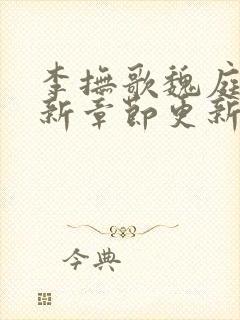 李撫歌魏庭
新章節更新
今典